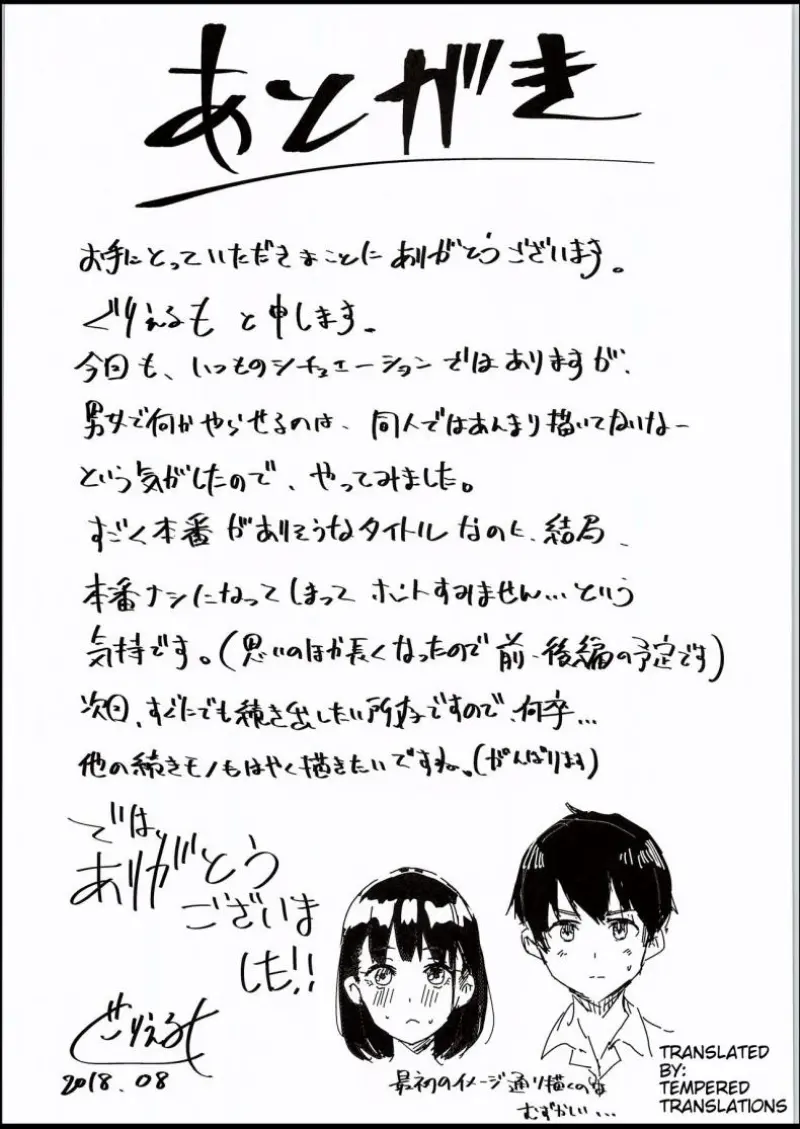 あとがき
お手にとっていただきまことにありがとうございます。
ぐりえるもと申します。
今回も、いつものシチュエーションではありますが、
男女で何かやらせるのは、同人ではあんまり描いてないなー
という気がしたので、やってみました。
すごく本番がありそうなタイトルなのに、結局、
本番ナシになってしまってホントすみません…という
気持です。(思いのほか長くなったので前、後編の予定です)
次回、すぐにでも続き出したい所存ですので、何卒…
他の続きモノもはやく描きたいですね。(がんばります)
では、
ありがとう
ございま
した!!
ぐりえるも
2018.08
最初のイメージ通り描くのは
むずかしい…
TRANSLATED
BY:
TEMPERED
TRANSLATIONS